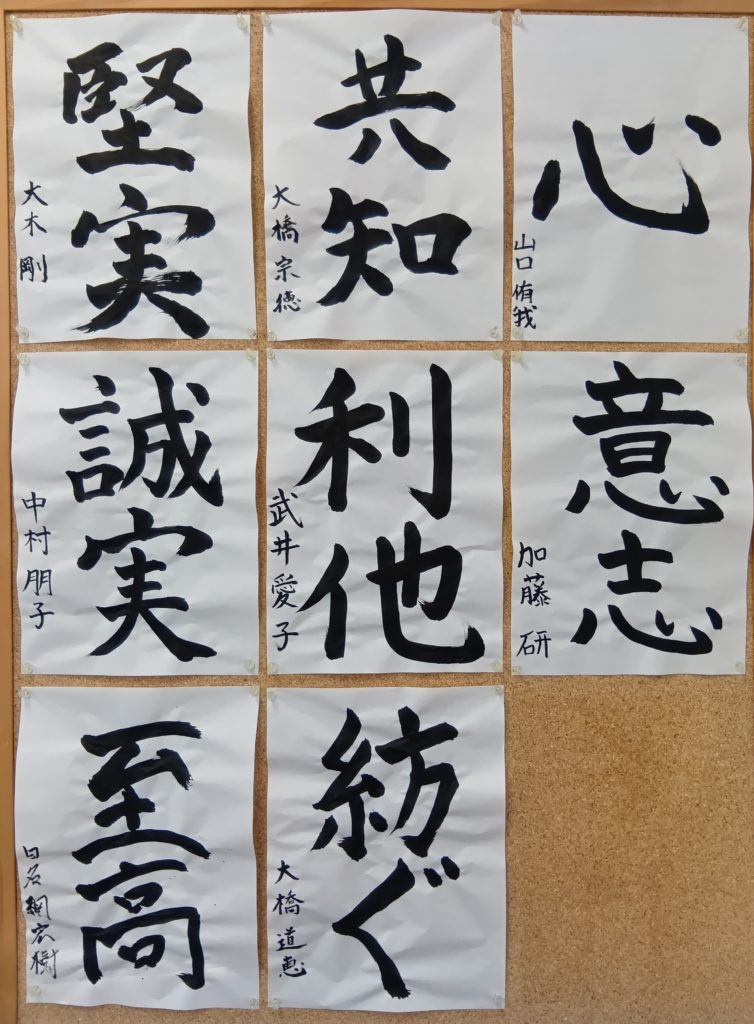 堅実
大木 剛
共知
大橋宗徳
心
山口侑我
誠実
中村朋子
利他
武井愛子
意志
加藤 研
至高
紡ぐ
大橋道恵